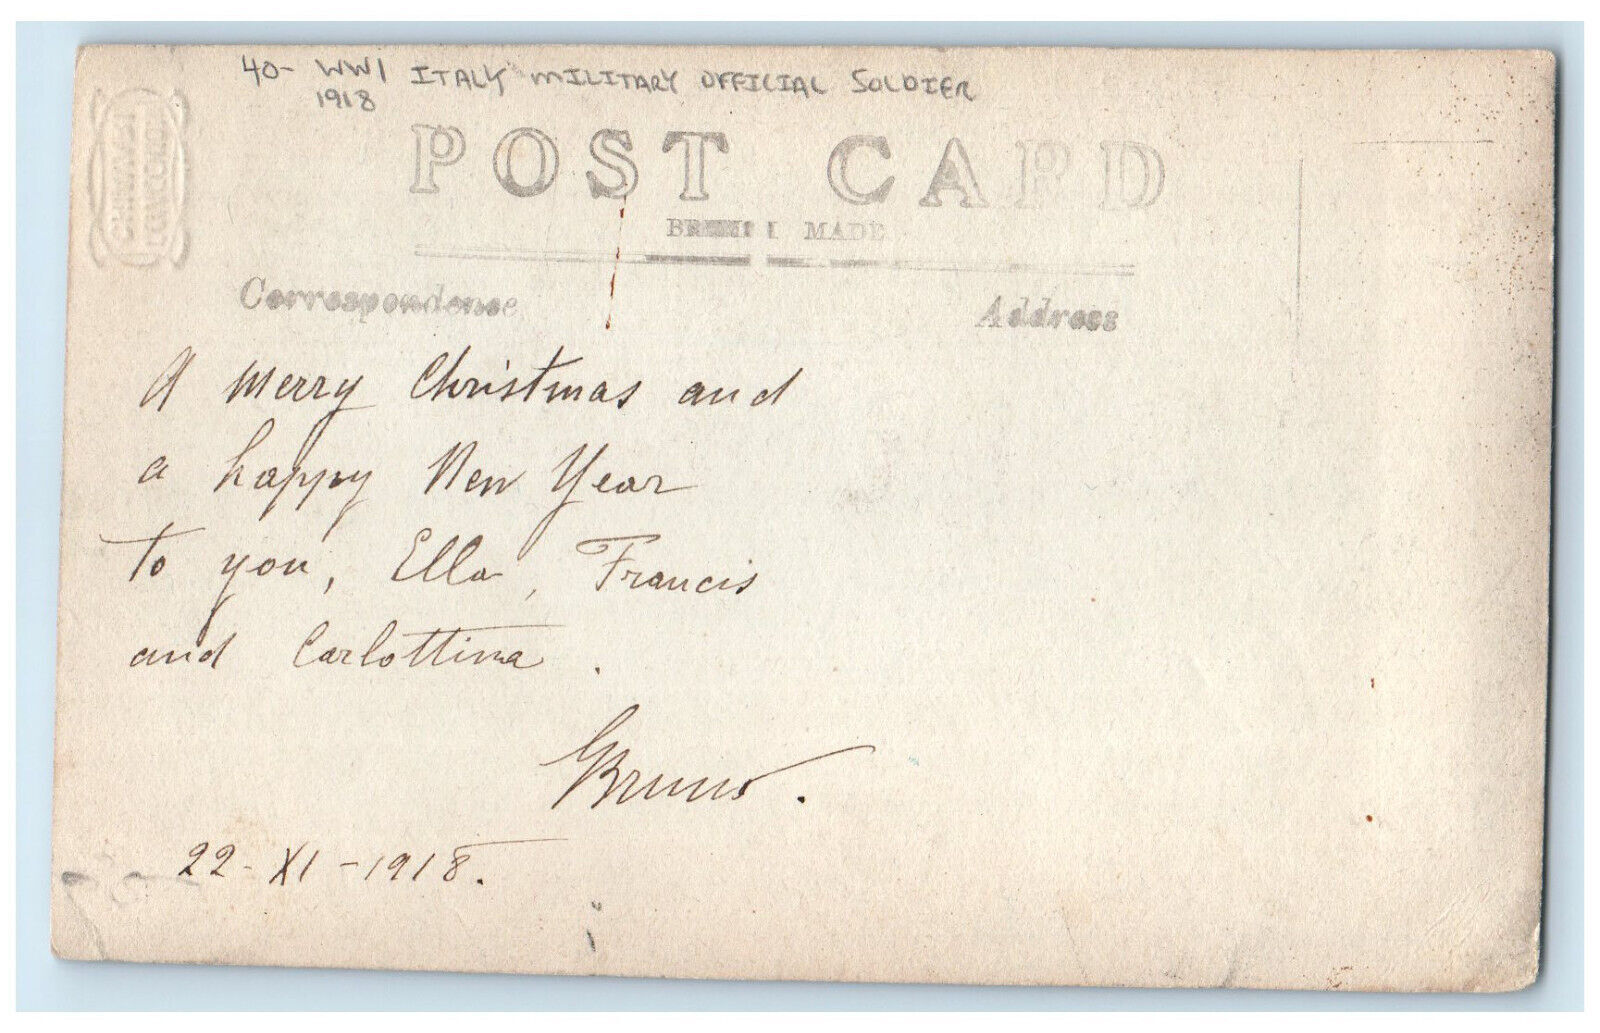 40- WW1 ITALY MILITARY OFFICIAL SOLDIER
1918
POST CARD
MADE
Correspondence
Address
A Merry Christmas and
a happy New Year
to you, Ella, Francis
and Carlottina.
Bruno.
22-XI-1918.